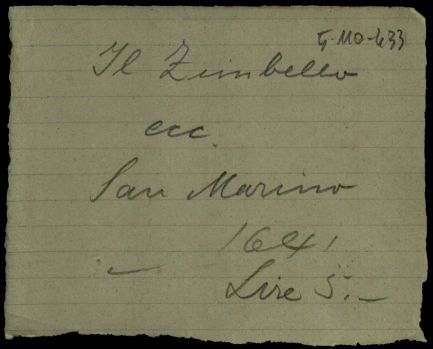 G-110-633
Il Zimbello
ecc.
San Marino
1641
Lire 5.-